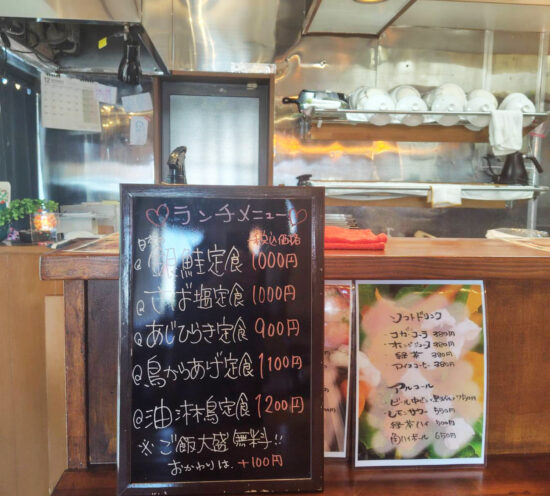 ランチメニュー
税込価格
銀鮭定食 1000円
さば塩定食 1000円
あじひらき定食 900円
鳥からあげ定食 1100円
油淋鳥定食 1200円
※ご飯大盛無料!!
おかわりは、+100円
ソフトドリンク
コカ・コーラ
オレンジジュース
緑茶 380円
アイスコーヒー 380円
アルコール
レモンサワー 550円
緑茶ハイ 500円
角ハイボール 650円
12